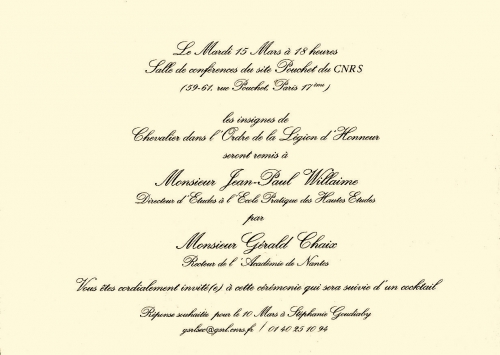 Le Mardi 15 Mars à 18 heures
Salle de conférences du site Pouchet du CNRS
(59-61, rue Pouchet, Paris 17ème)
les insignes de
Chevalier dans l'Ordre de la Légion d'Honneur
seront remis à
Monsieur Jean-Paul Willaime
Directeur d'Etudes à l'Ecole Pratique des Hautes Etudes
par
Monsieur Gérald Chaix
Recteur de l'Académie de Nantes
Vous êtes cordialement invité(e) à cette cérémonie qui sera suivie d'un cocktail
Réponse souhaitée pour le 10 Mars à Stéphanie Goudiaby
gsrlsec@gsrl.cnrs.fr / 01 40 25 10 94